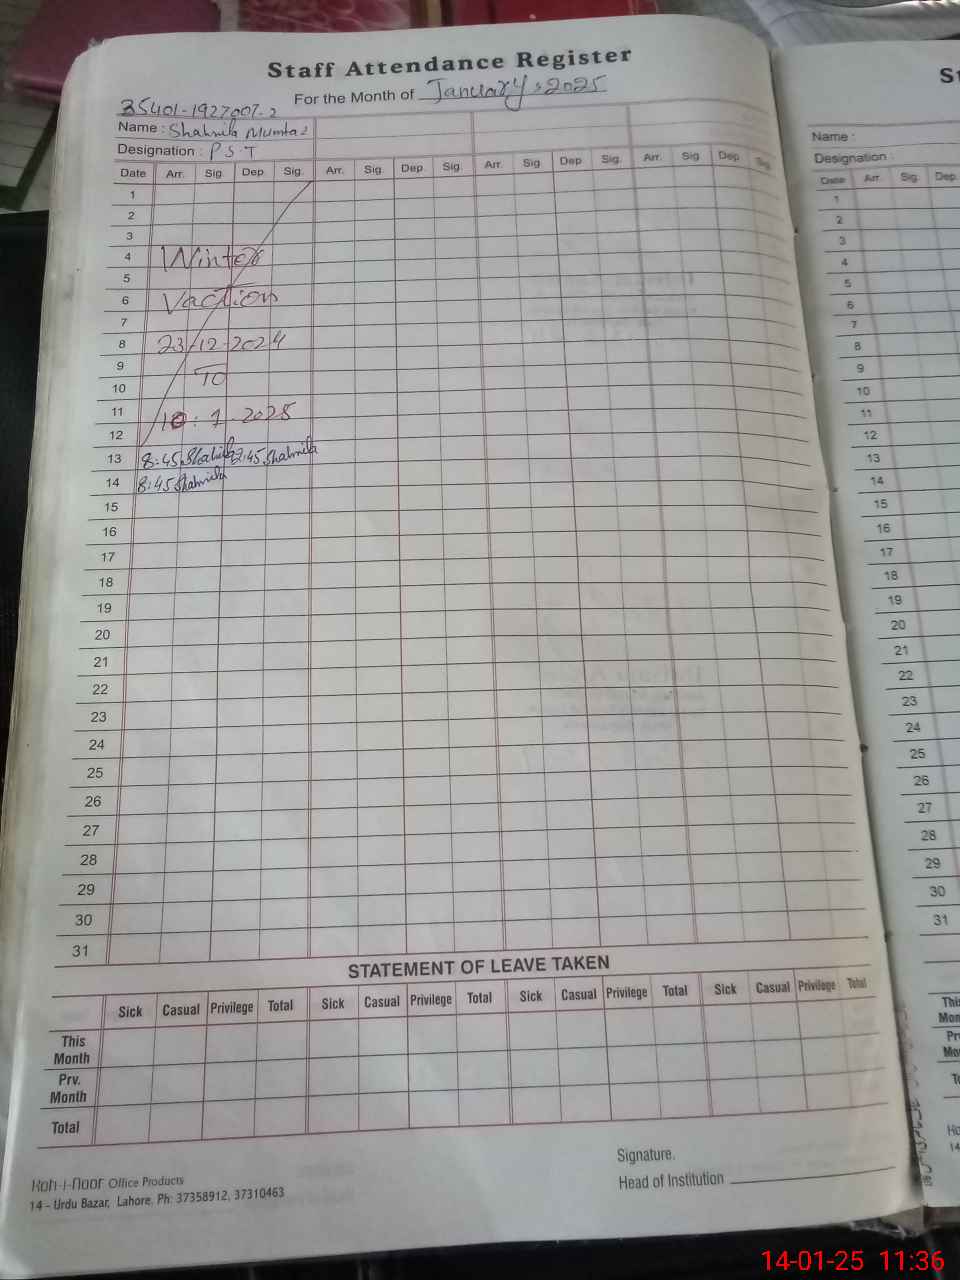 Staff Attendance Register
For the Month of January, 2025
35401-1927007-2
Name : Shahnila Mumtaz
Designation : P.S.T
Date Arr. Sig. Dep. Sig. Arr. Sig. Dep. Sig. Arr. Sig. Dep. Sig. Arr. Sig. Dep. Sig.
1
2
3
4 Winter
5
6 Vaction
7
8 23/12-2024
9 To
10
11 10: 1 2025
12
13 8:45 Shahnila 2:45 Shahnila
14 8:45 Shahnila
15
16
17
18
19
20
21
22
23
24
25
26
27
28
29
30
31
STATEMENT OF LEAVE TAKEN
Sick Casual Privilege Total Sick Casual Privilege Total Sick Casual Privilege Total Sick Casual Privilege Total
This Month
Prv. Month
Total
Signature.
Head of Institution
Koh-i-noor Office Products
14 - Urdu Bazar, Lahore. Ph: 37358912, 37310463
Name :
Designation :
Date Arr. Sig. Dep.
1
2
3
4
5
6
7
8
9
10
11
12
13
14
15
16
17
18
19
20
21
22
23
24
25
26
27
28
29
30
31
14-01-25 11:36